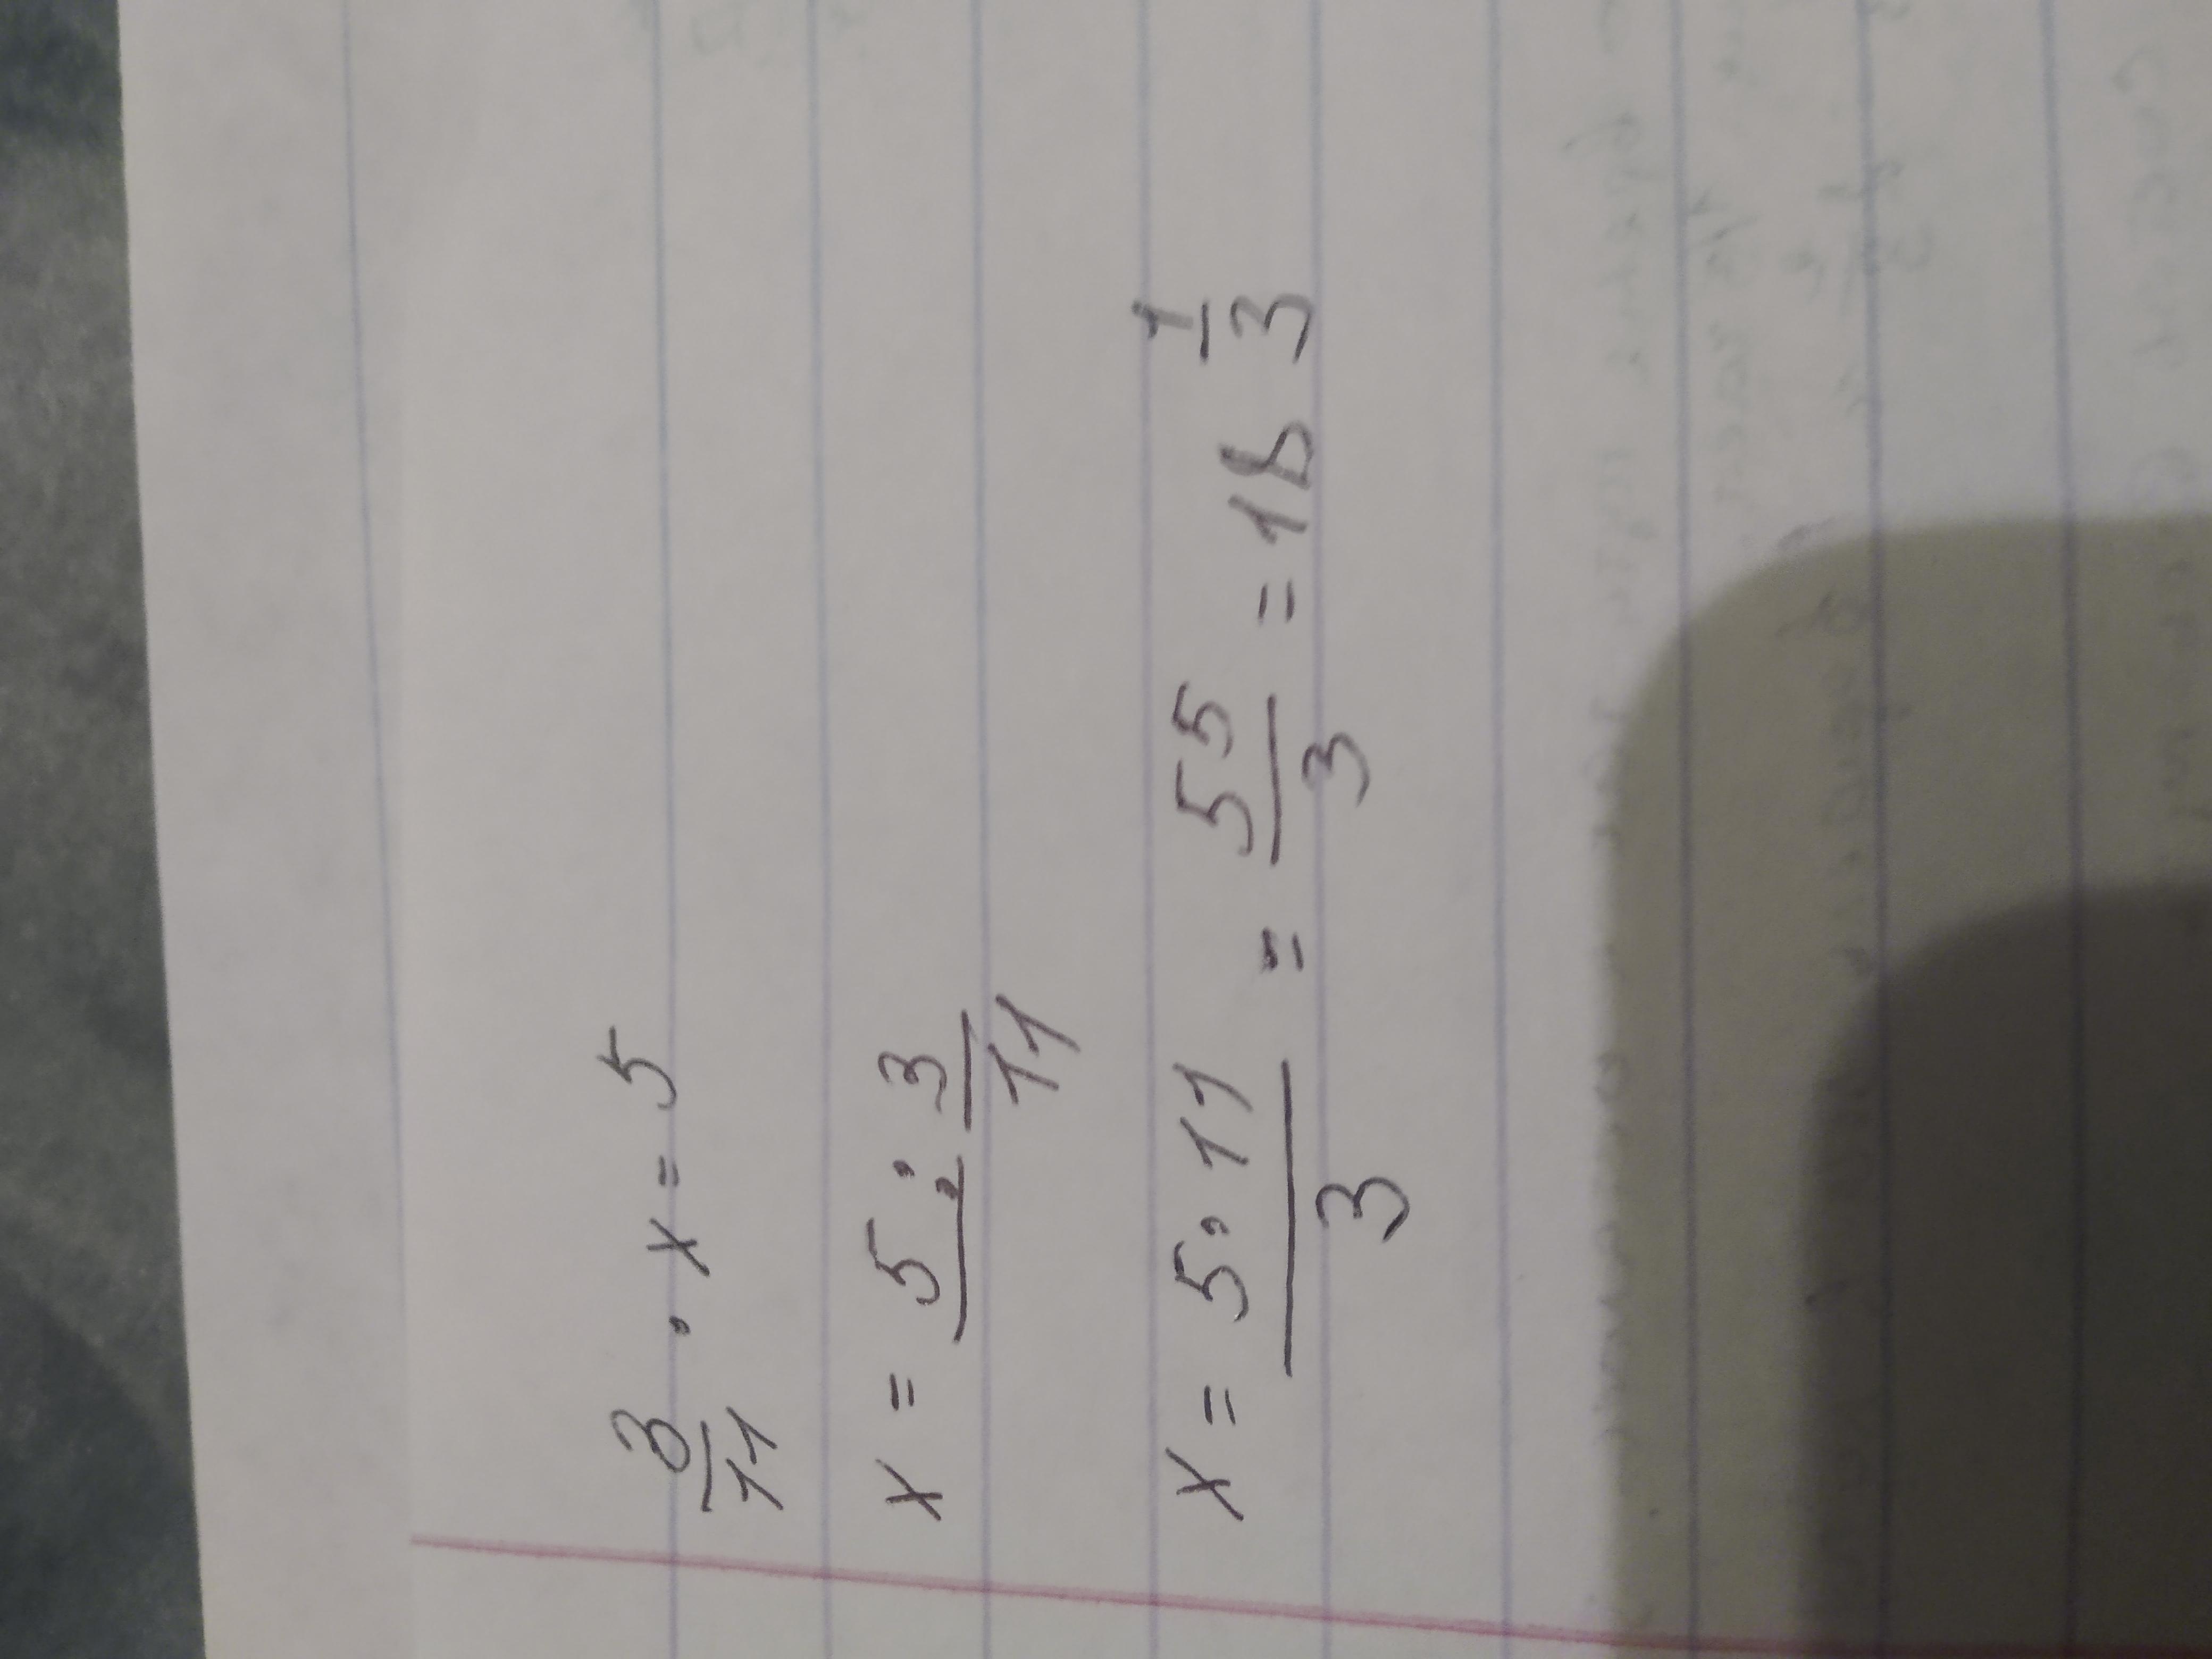 3/11 · x = 5
x = 5 : 3/11
x = 5 · 11/3 = 55/3 = 18 1/3